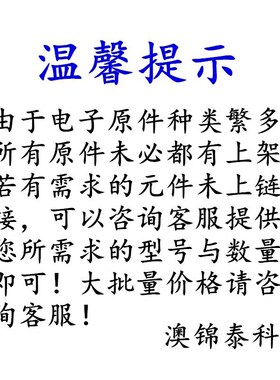 温馨提示
由于电子原件种类繁多
所有原件未必都有上架
若有需求的元件未上链
接，可以咨询客服提供
您所需求的型号与数量
即可！大批量价格请咨
询客服！
澳锦泰科